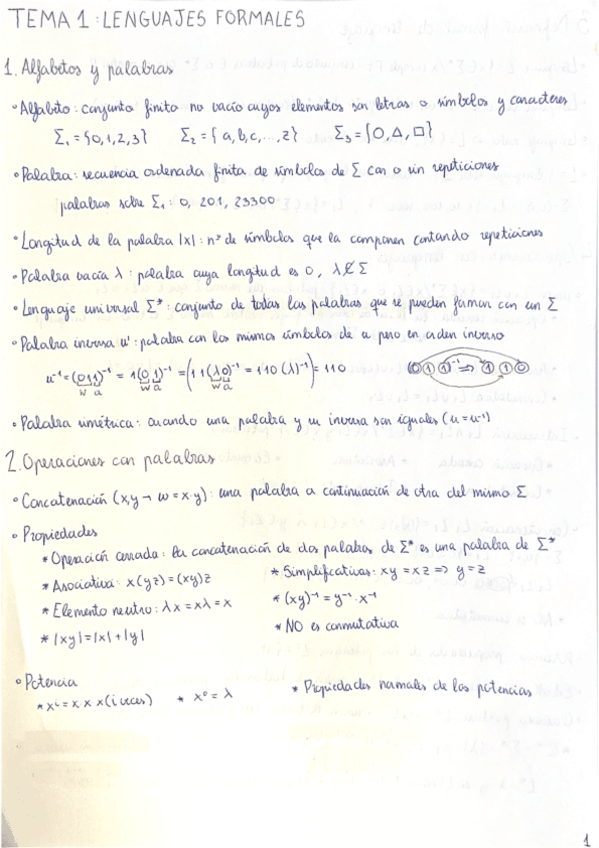 TEMA 1: LENGUAJES FORMALES
1. Alfabetos y palabras
• Alfabeto: conjunto finito no vacío cuyos elementos son letras o símbolos y caracteres
Σ₁ = {0,1,2,3} Σ₂ = {a,b,c,...,z} Σ₃ = {O, Δ, □}
• Palabra: secuencia ordenada finita de símbolos de Σ con o sin repeticiones
palabras sobre Σ₁: 0, 201, 23300
• Longitud de la palabra |x|: nº de símbolos que la componen contando repeticiones
• Palabra vacía λ: palabra cuya longitud es 0, λ ∉ Σ
• Lenguaje universal Σ*: conjunto de todas las palabras que se pueden formar con un Σ
• Palabra inversa u⁻¹: palabra con los mismos símbolos de u pero en orden inverso
u⁻¹ = (011)⁻¹ = 1(01)⁻¹ = (11(λ0)⁻¹) = 110(λ)⁻¹) = 110 (011)⁻¹ ⇒ 110
w a w a w a
• Palabra simétrica: cuando una palabra y su inversa son iguales (u = u⁻¹)
2. Operaciones con palabras
• Concatenación (x,y → w = x·y): una palabra a continuación de otra del mismo Σ
• Propiedades
* Operación cerrada: la concatenación de dos palabras de Σ* es una palabra de Σ*
* Asociativa: x(yz) = (xy)z * Simplificativas: xy = xz ⇒ y = z
* Elemento neutro: λx = xλ = x * (xy)⁻¹ = y⁻¹·x⁻¹
* |xy| = |x| + |y| * NO es conmutativa
• Potencia
* xⁱ = x·x·x (i veces) * x⁰ = λ * Propiedades normales de las potencias
1